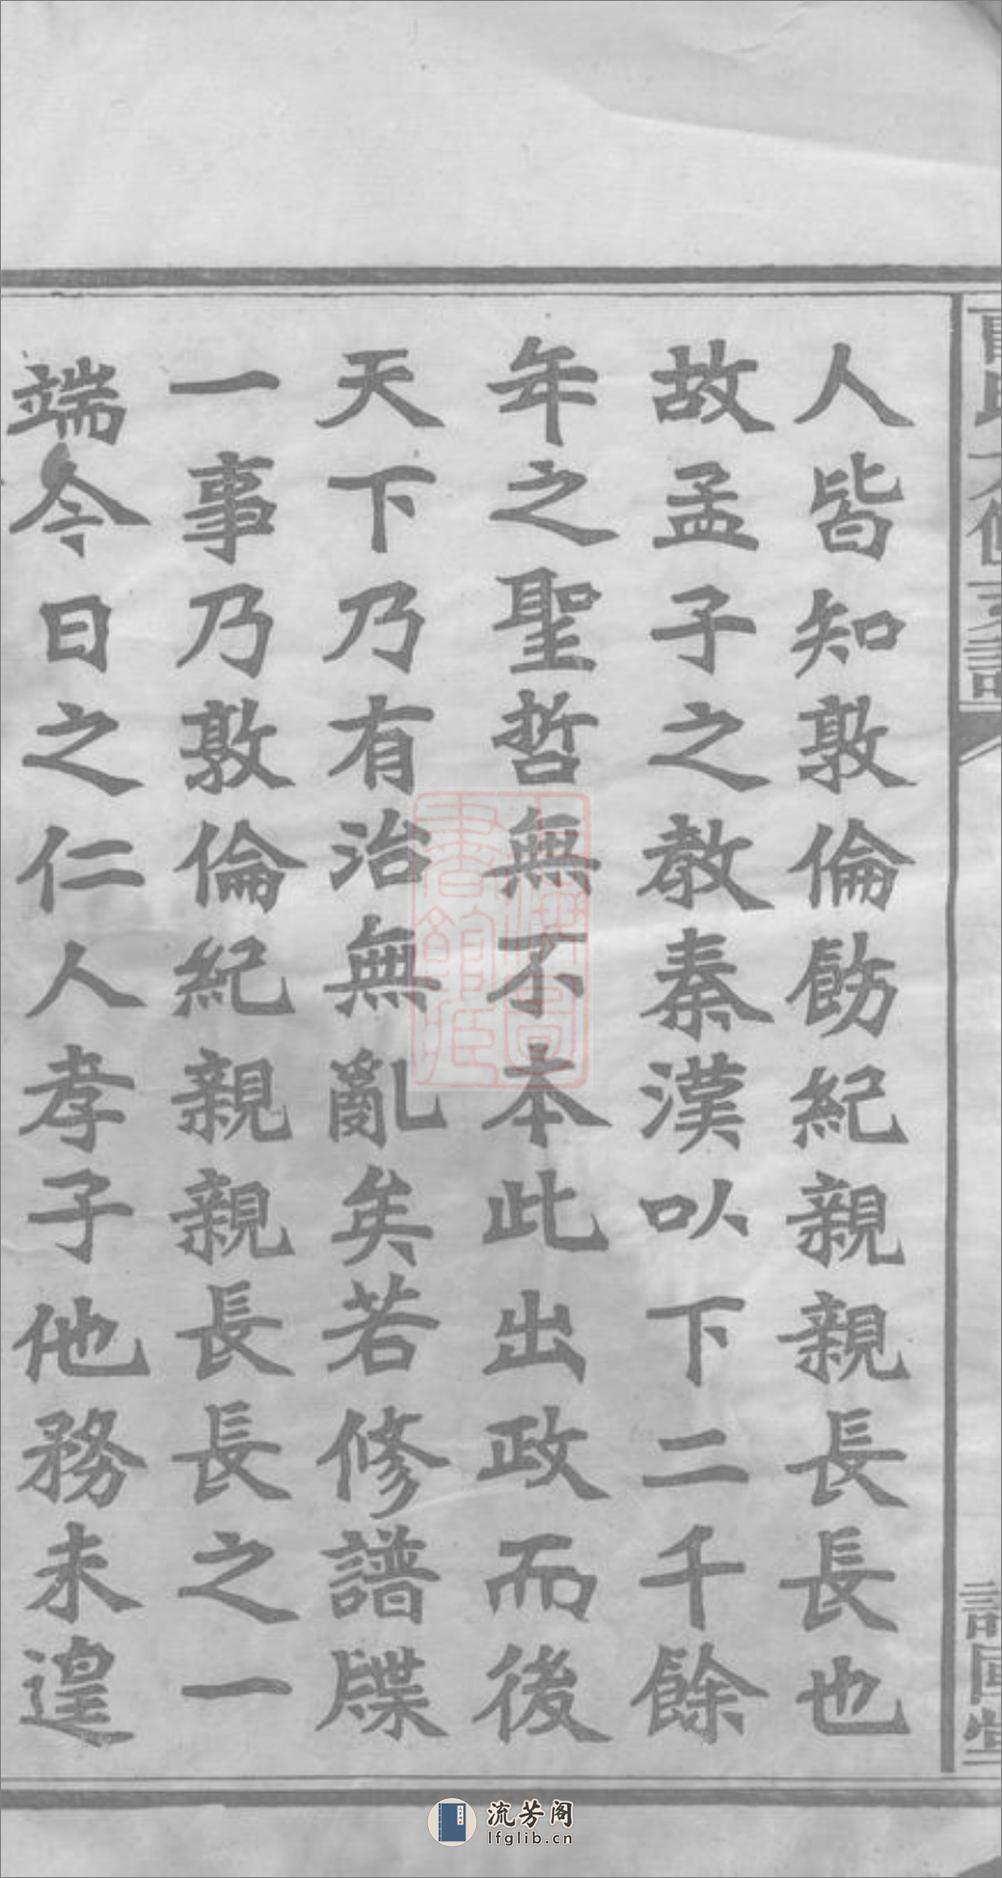 人皆知敦倫飭紀親親長長也
故孟子之教秦漢以下二千餘
年之聖哲無不本此出政而後
天下乃有治無亂矣若修譜牒
一事乃敦倫紀親親長長之一
端今日之仁人孝子他務未遑
流芳阁
lfglib.cn